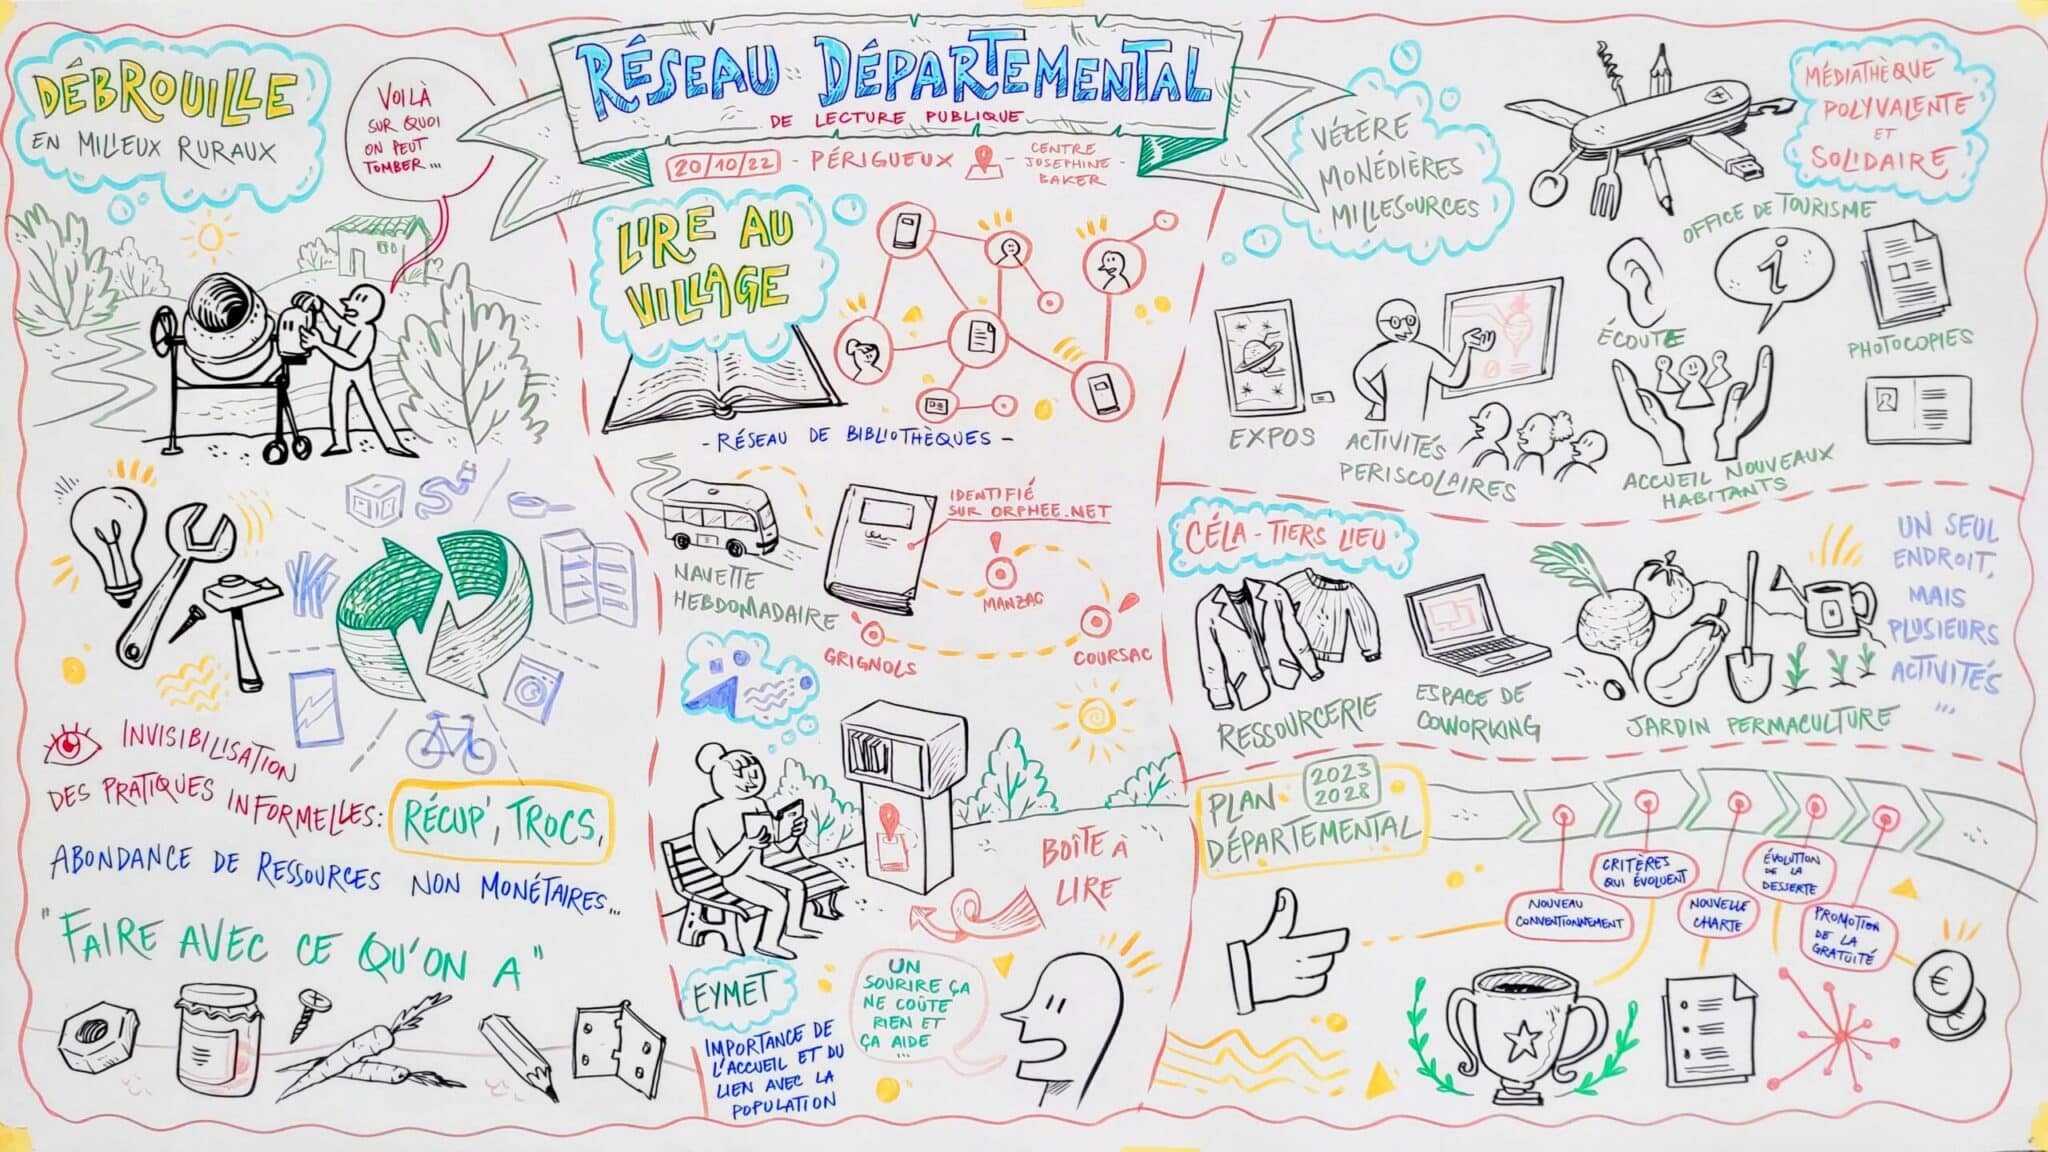 RÉSEAU DÉPARTEMENTAL
DE LECTURE PUBLIQUE
20/10/22 - PÉRIGUEUX - CENTRE
JOSEPHINE -
BAKER
DÉBROUILLE
EN MILIEUX RURAUX
VOILÀ
SUR QUOI
ON PEUT
TOMBER...
INVISIBILISATION
DES PRATIQUES INFORMELLES:
RÉCUP', TROCS,
ABONDANCE DE RESSOURCES NON MONÉTAIRES...
"FAIRE AVEC CE QU'ON A"
LIRE AU
VILLAGE
- RÉSEAU DE BIBLIOTHÈQUES -
NAVETTE
HEBDOMADAIRE
IDENTIFIÉ
SUR ORPHEE.NET
MANZAC
GRIGNOLS
COURSAC
BOÎTE À
LIRE
EYMET
IMPORTANCE DE
L'ACCUEIL ET DU
LIEN AVEC LA
POPULATION
UN
SOURIRE ÇA
NE COÛTE
RIEN ET
ÇA AIDE
...
VÉZÈRE
MONÉDIÈRES
MILLESOURCES
MÉDIATHÈQUE
POLYVALENTE
ET
SOLIDAIRE
OFFICE DE TOURISME
i
ÉCOUTE
PHOTOCOPIES
EXPOS
ACTIVITÉS
PERISCOLAIRES
ACCUEIL NOUVEAUX
HABITANTS
CÉLA - TIERS LIEU
RESSOURCERIE
ESPACE DE
COWORKING
JARDIN PERMACULTURE
UN SEUL
ENDROIT,
MAIS
PLUSIEURS
ACTIVITÉS
...
PLAN
DÉPARTEMENTAL
2023
2028
NOUVEAU
CONVENTIONNEMENT
CRITÈRES
QUI ÉVOLUENT
NOUVELLE
CHARTE
ÉVOLUTION
DE LA
DESSERTE
PROMOTION
DE LA
GRATUITÉ
€